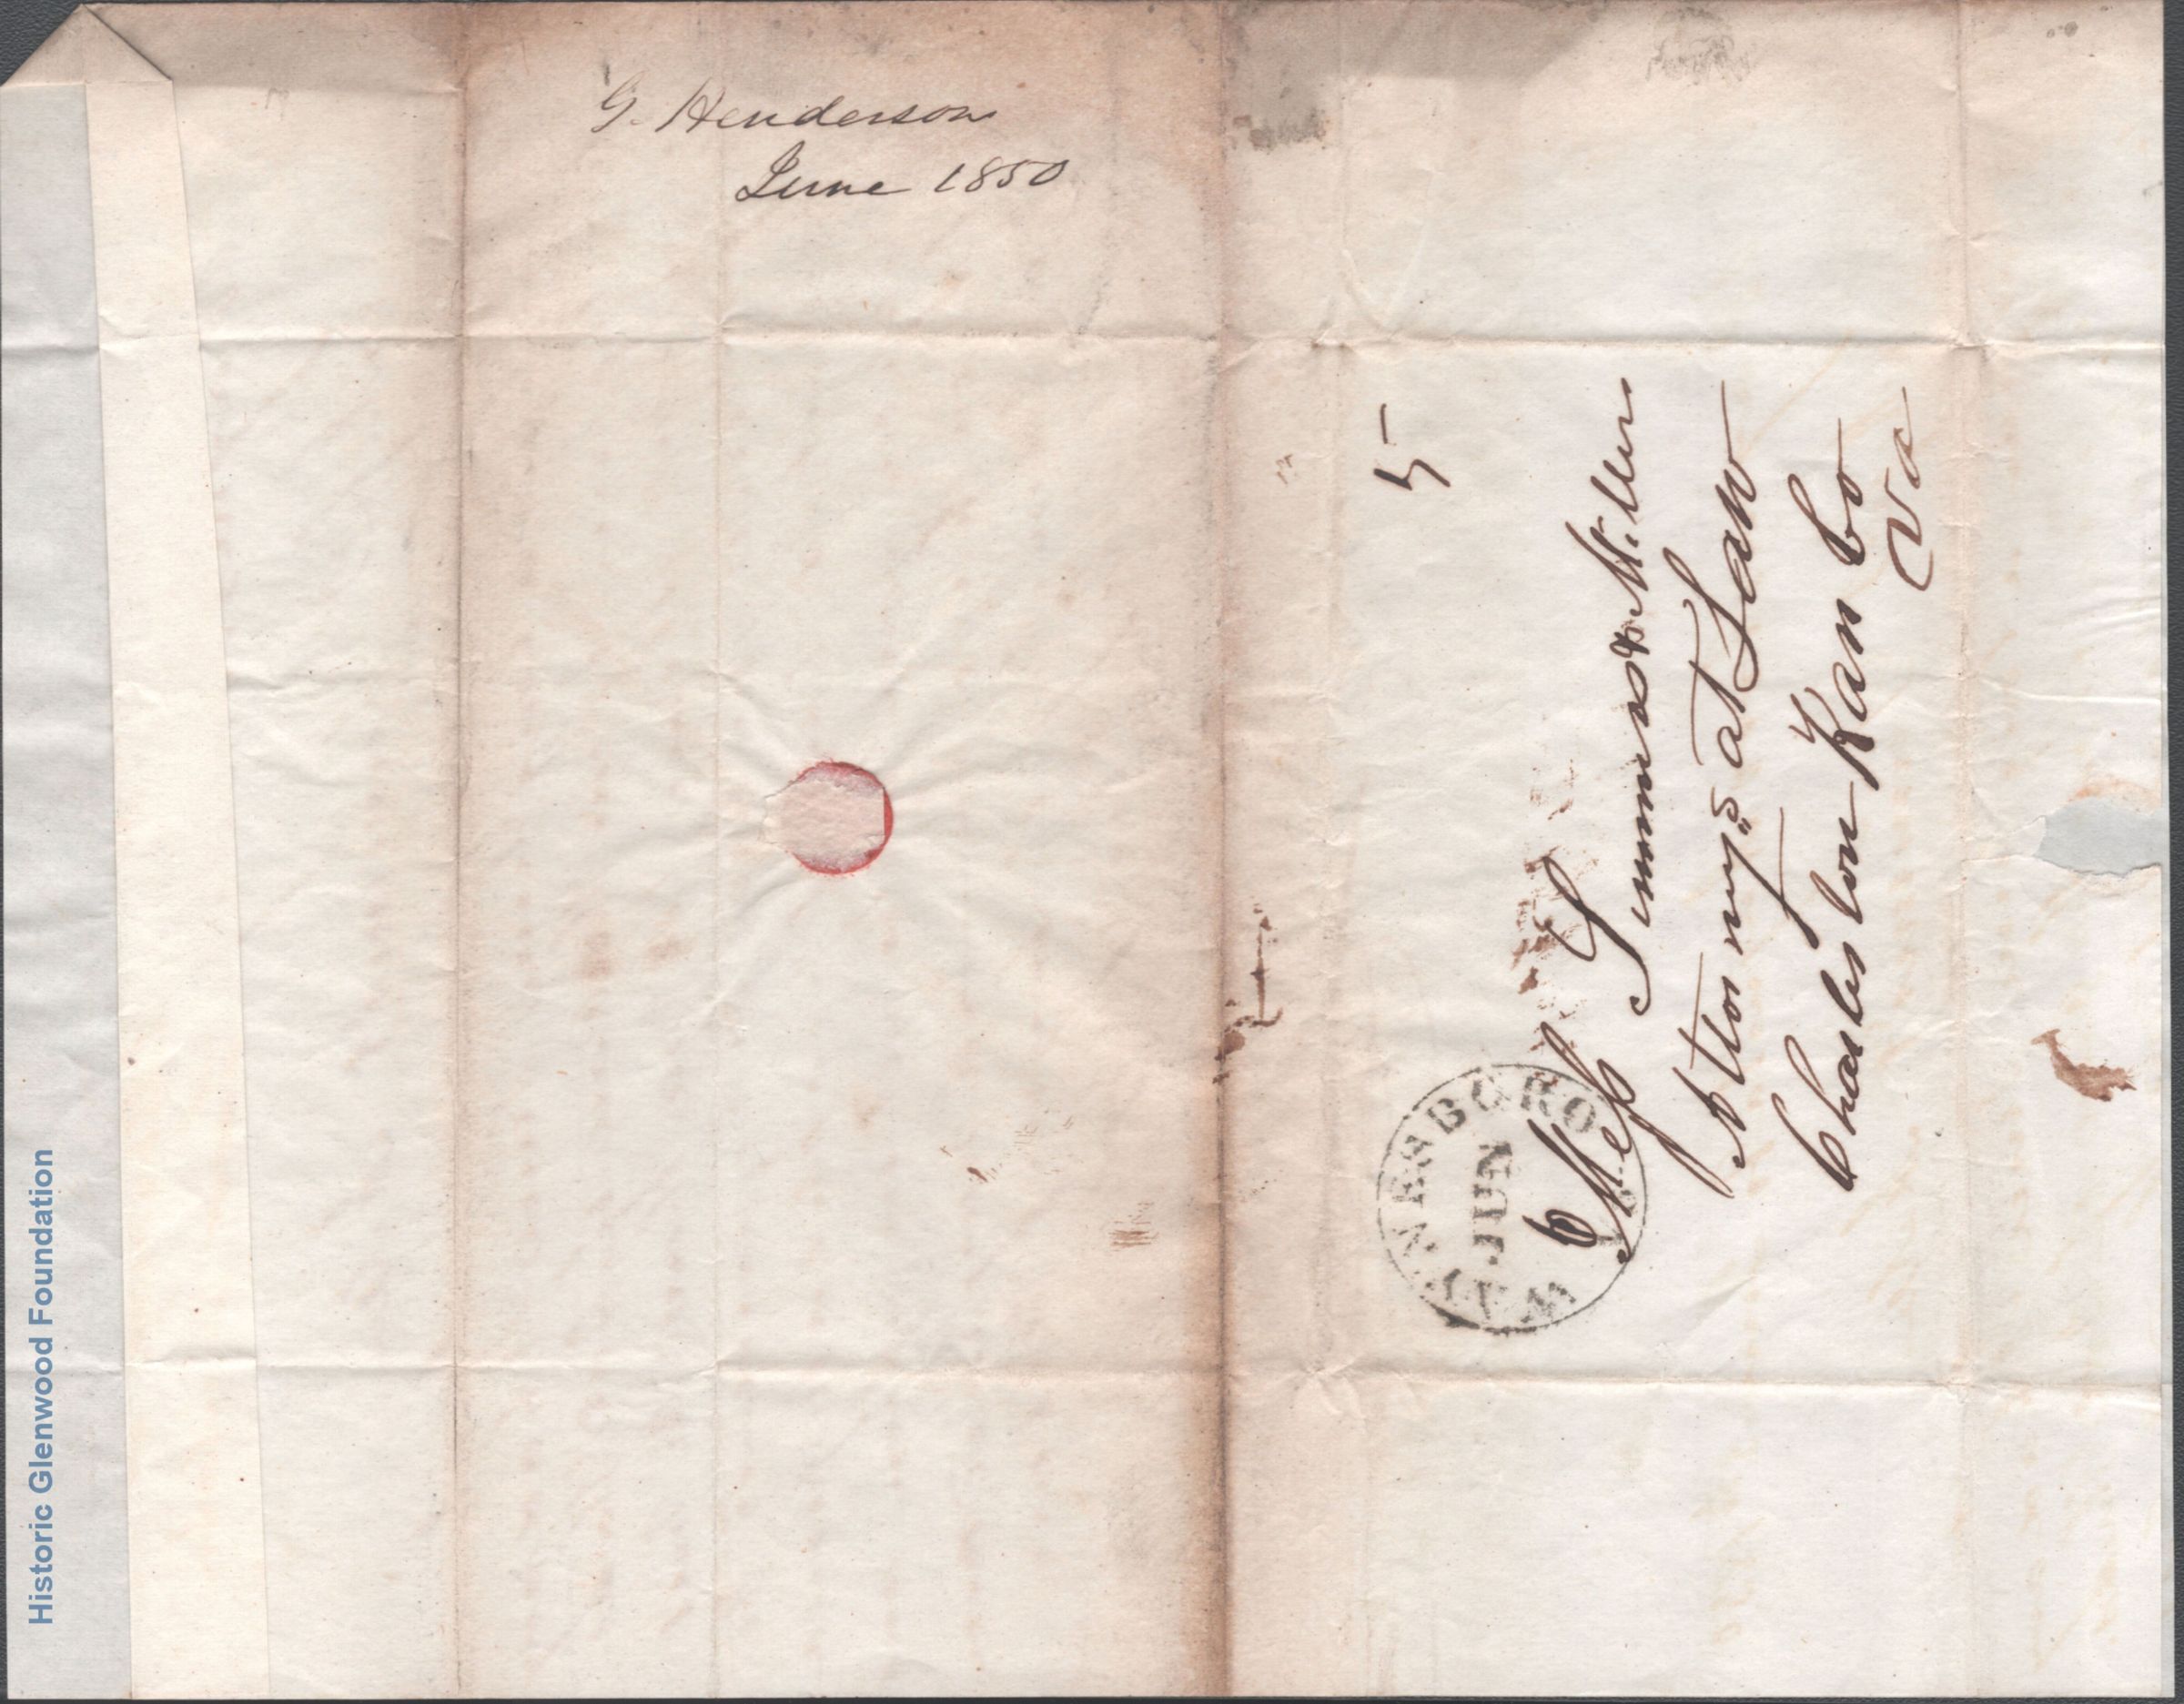 G. Henderson
June 1850
5
WAYNESBORO
JUN
6
Mess Summers & Miller
Attornys at Law
Charleston Kan Co
Va
Historic Glenwood Foundation